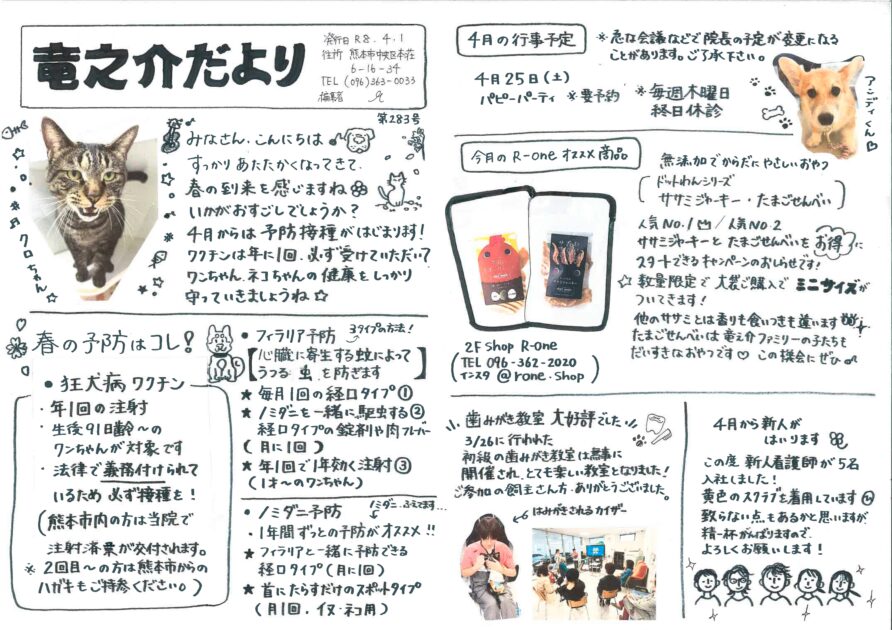 竜之介だより
発行日 R8.4.1
住所 熊本市中央区本荘
6-16-34
TEL (096)363-0033
編集者
第283号
みなさん、こんにちは
すっかりあたたかくなってきて、
春の到来を感じますね
いかがおすごしでしょうか?
4月からは予防接種がはじまります!
ワクチンは年に1回、必ず受けていただいて
ワンちゃん、ネコちゃんの健康をしっかり
守っていきましょうね☆
クロちゃん
春の予防はコレ!
・狂犬病ワクチン
・年1回の注射
・生後91日齢〜の
ワンちゃんが対象です
・法律で義務付けられて
いるため必ず接種を!
(熊本市内の方は当院で
注射済票が交付されます。
※2回目〜の方は熊本市からの
ハガキもご持参ください。)
・フィラリア予防
3タイプの方法!
【心臓に寄生する蚊によって
うつる虫を防ぎます】
★毎月1回の経口タイプ①
★ノミダニを一緒に駆虫する②
経口タイプの錠剤や肉フレーバー
(月に1回)
★年1回で1年効く注射③
(1才〜のワンちゃん)
・ノミダニ予防
ノミダニ、ふえます…
・1年間ずっとの予防がオススメ!!
★フィラリアと一緒に予防できる
経口タイプ(月に1回)
★首にたらすだけのスポットタイプ
(月1回、イヌ・ネコ用)
4月の行事予定
※急な会議などで院長の予定が変更になる
ことがあります。ご了承下さい。
4月25日(土)
パピーパーティ ※要予約
※毎週木曜日
終日休診
アンディくん
今月のR-oneオススメ商品
無添加でからだにやさしいおやつ
(ドットわんシリーズ
ササミジャーキー・たまごせんべい)
人気No.1/人気No.2
ササミジャーキーとたまごせんべいをお得に
スタートできるキャンペーンのおしらせです!
☆数量限定で大袋ご購入でミニサイズが
ついてきます!
他のササミとは香りも食いつきも違います
たまごせんべいは竜之介ファミリーの子たちも
だいすきなおやつです♡ この機会にぜひ
2F shop R-one
(TEL 096-362-2020
インスタ @rone.shop)
歯みがき教室 大好評でした
3/26に行われた
初級の歯みがき教室は無事に
開催され、とても楽しい教室となりました!
ご参加の飼主さん方、ありがとうございました。
はみがきされるカイザー
4月から新人が
はいります
この度 新人看護師が5名
入社しました!
黄色のスクラブを着用しています
致らない点もあるかと思いますが、
精一杯がんばりますので、
よろしくお願いします!